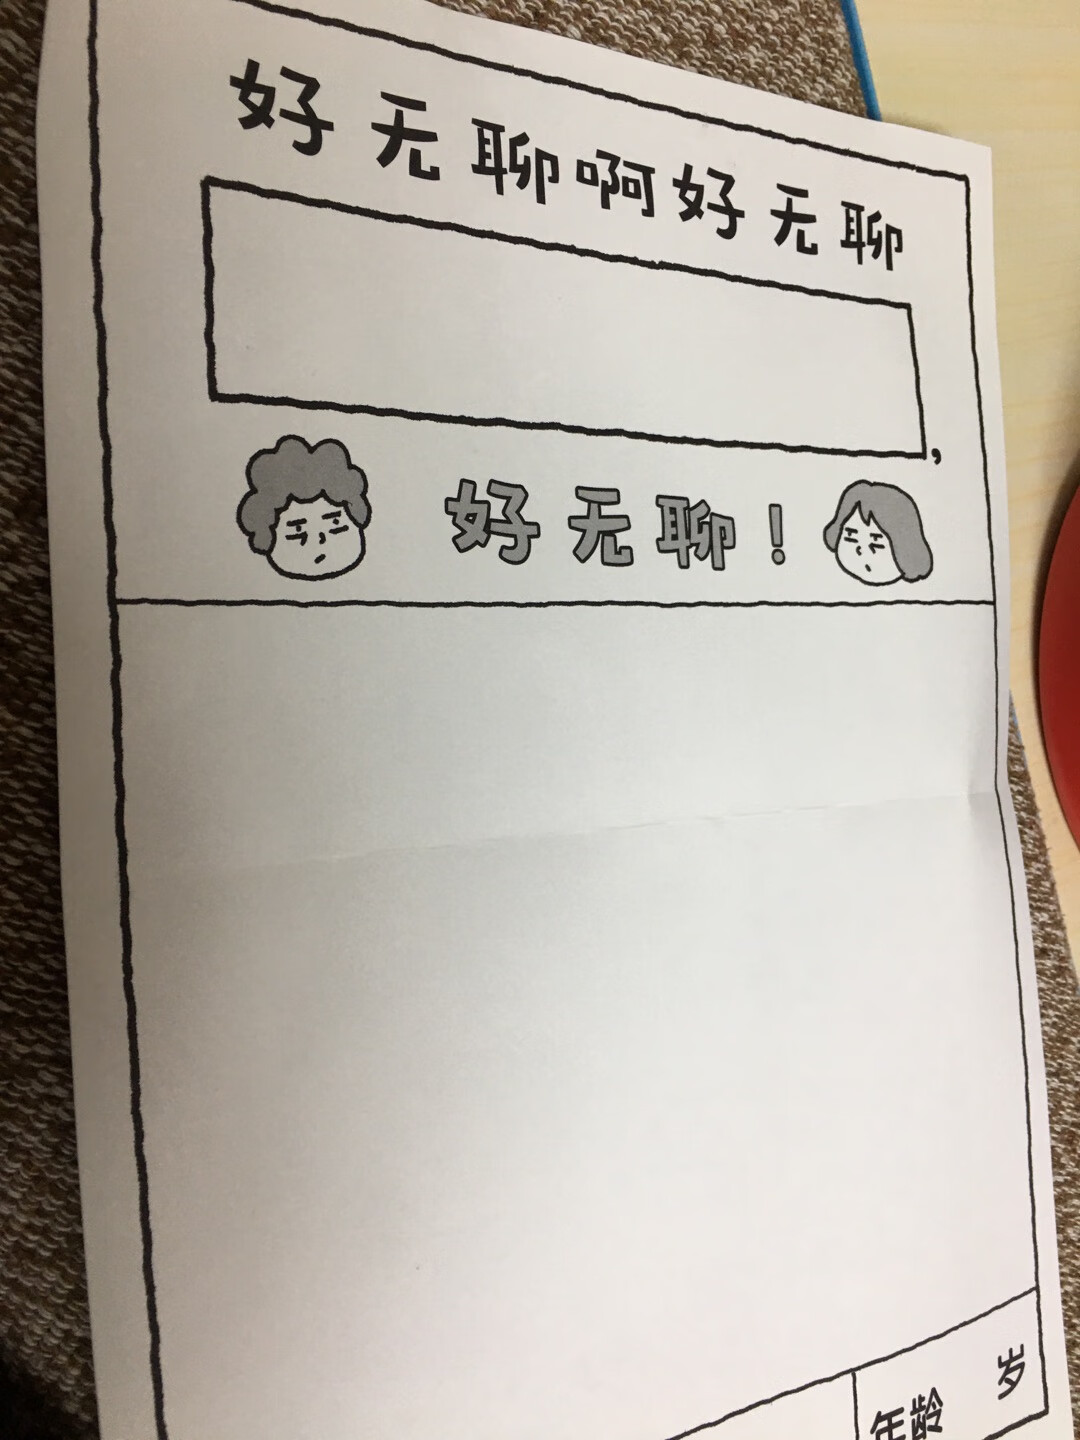 好无聊啊好无聊
,
好无聊!
年龄 岁